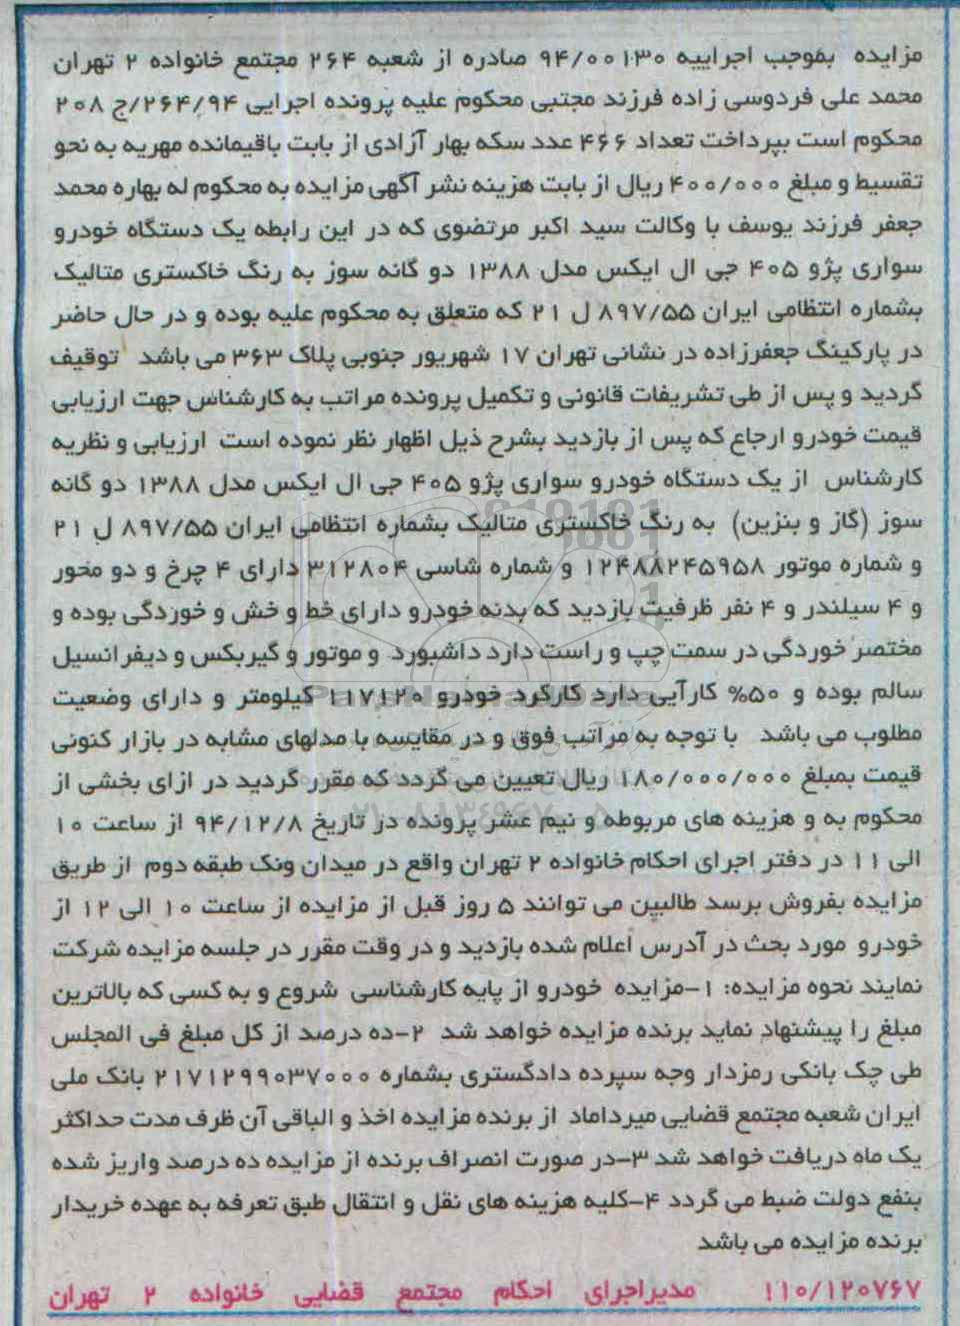 مزایده بموجب اجراییه ۹۴/۰۰۱۳۰ صادره از شعبه ۲۶۴ مجتمع خانواده ۲ تهران
محمد علی فردوسی زاده فرزند مجتبی محکوم علیه پرونده اجرایی ۲۶۴/۹۴/ج ۲۰۸
محکوم است بپرداخت تعداد ۴۶۶ عدد سکه بهار آزادی از بابت باقیمانده مهریه به نحو
تقسیط و مبلغ ۴۰۰/۰۰۰ ریال از بابت هزینه نشر آگهی مزایده به محکوم له بهاره محمد
جعفر فرزند یوسف با وکالت سید اکبر مرتضوی که در این رابطه یک دستگاه خودرو
سواری پژو ۴۰۵ جی ال ایکس مدل ۱۳۸۸ دو گانه سوز به رنگ خاکستری متالیک
بشماره انتظامی ایران ۸۹۷/۵۵ ل ۲۱ که متعلق به محکوم علیه بوده و در حال حاضر
در پارکینگ جعفرزاده در نشانی تهران ۱۷ شهریور جنوبی پلاک ۳۶۳ می باشد توقیف
گردید و پس از طی تشریفات قانونی و تکمیل پرونده مراتب به کارشناس جهت ارزیابی
قیمت خودرو ارجاع که پس از بازدید بشرح ذیل اظهار نظر نموده است ارزیابی و نظریه
کارشناس از یک دستگاه خودرو سواری پژو ۴۰۵ جی ال ایکس مدل ۱۳۸۸ دو گانه
سوز (گاز و بنزین) به رنگ خاکستری متالیک بشماره انتظامی ایران ۸۹۷/۵۵ ل ۲۱
و شماره موتور ۱۲۴۸۸۲۴۵۹۵۸ و شماره شاسی ۳۱۲۸۰۴ دارای ۴ چرخ و دو محور
و ۴ سیلندر و ۴ نفر ظرفیت بازدید که بدنه خودرو دارای خط و خش و خوردگی بوده و
مختصر خوردگی در سمت چپ و راست دارد داشبورد و موتور و گیربکس و دیفرانسیل
سالم بوده و ۵۰% کارآیی دارد کارکرد خودرو ۱۱۷۱۲۰ کیلومتر و دارای وضعیت
مطلوب می باشد با توجه به مراتب فوق و در مقایسه با مدلهای مشابه در بازار کنونی
قیمت بمبلغ ۱۸۰/۰۰۰/۰۰۰ ریال تعیین می گردد که مقرر گردید در ازای بخشی از
محکوم به و هزینه های مربوطه و نیم عشر پرونده در تاریخ ۹۴/۱۲/۸ از ساعت ۱۰
الی ۱۱ در دفتر اجرای احکام خانواده ۲ تهران واقع در میدان ونک طبقه دوم از طریق
مزایده بفروش برسد طالبین می توانند ۵ روز قبل از مزایده از ساعت ۱۰ الی ۱۲ از
خودرو مورد بحث در آدرس اعلام شده بازدید و در وقت مقرر در جلسه مزایده شرکت
نمایند نحوه مزایده: ۱-مزایده خودرو از پایه کارشناسی شروع و به کسی که بالاترین
مبلغ را پیشنهاد نماید برنده مزایده خواهد شد ۲-ده درصد از کل مبلغ فی المجلس
طی چک بانکی رمزدار وجه سپرده دادگستری بشماره ۲۱۷۱۲۹۹۰۳۷۰۰۰ بانک ملی
ایران شعبه مجتمع قضایی میرداماد از برنده مزایده اخذ و الباقی آن ظرف مدت حداکثر
یک ماه دریافت خواهد شد ۳-در صورت انصراف برنده از مزایده ده درصد واریز شده
بنفع دولت ضبط می گردد ۴-کلیه هزینه های نقل و انتقال طبق تعرفه به عهده خریدار
برنده مزایده می باشد
۱۱۰/۱۲۰۷۶۷ مدیراجرای احکام مجتمع قضایی خانواده ۲ تهران